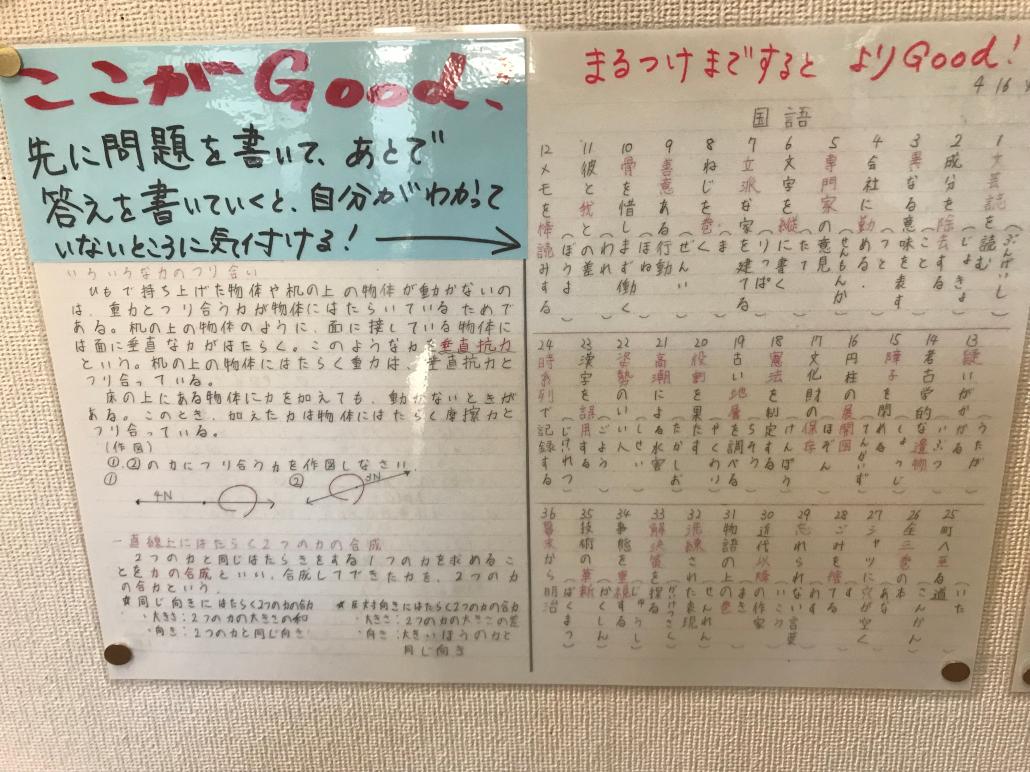 ここがGood!
先に問題を書いて、あとで
答えを書いていくと、自分がわかって
いないところに気付ける!
いろいろな力のつり合い
ひもで持ち上げた物体や机の上の物体が動かないの
は、重力とつり合う力が物体にはたらいているためで
ある。机の上の物体のように、面に接している物体に
は面に垂直な力がはたらく。このような力を垂直抗力
という。机の上の物体にはたらく重力は、垂直抗力と
つり合っている。
床の上にある物体に力を加えても、動かないときが
ある。このとき、加えた力は物体にはたらく摩擦力と
つり合っている。
(作図)
①、②の力につり合う力を作図しなさい
① ②
4N 3N
一直線上にはたらく2つの力の合成
2つの力と同じはたらきをする1つの力を求めるこ
とを力の合成といい、合成してできた力を、2つの力
の合力という。
★同じ向きにはたらく2つの力の合力
・大きさ:2つの力の大きさの和
・向き:2つの力と同じ向き
★反対向きにはたらく2つの力の合力
・大きさ:2つの力の大きさの差
・向き:大きいほうの力と
同じ向き
まるつけまですると よりGood!
4 16
国語
1 文芸誌を読む (ぶんげいし)
2 成分を除去する (じょきょ)
3 異なる意味を表す (こと)
4 会社に勤める。 (つと)
5 専門家の意見 (せんもんか)
6 文字を縦に書く (たて)
7 立派な家を建てる (りっぱ)
8 ねじを巻く (ま)
9 善意ある行動 (ぜんい)
10 骨を惜しまず働く (ほね)
11 彼と我の差 (われ)
12 メモを棒読みする (ぼうよ)
13 疑いがかかる (うたが)
14 考古学的な遺物 (いぶつ)
15 障子を閉める (しょうじ)
16 円柱の展開図 (てんかいず)
17 文化財の保存 (ほぞん)
18 憲法を制定する (けんぽう)
19 古い地層を調べる (ちそう)
20 役割を果たす (やくわり)
21 高潮による水害 (たかしお)
22 姿勢のいい人 (しせい)
23 漢字を誤用する (ごよう)
24 時系列で記録する (じけいれつ)
25 町へ至る道 (いた)
26 全三巻の本 (さんかん)
27 シャツに穴が空く (あな)
28 ごみを捨てる (す)
29 忘れられない言葉 (わす)
30 近代以降の作家 (いこう)
31 物語の上の巻 (まき)
32 洗練された表現 (せんれん)
33 解決策を探る (かいけつさく)
34 事態を重視する (じゅうし)
35 技術の革新 (かくしん)
36 幕末から明治 (ばくまつ)